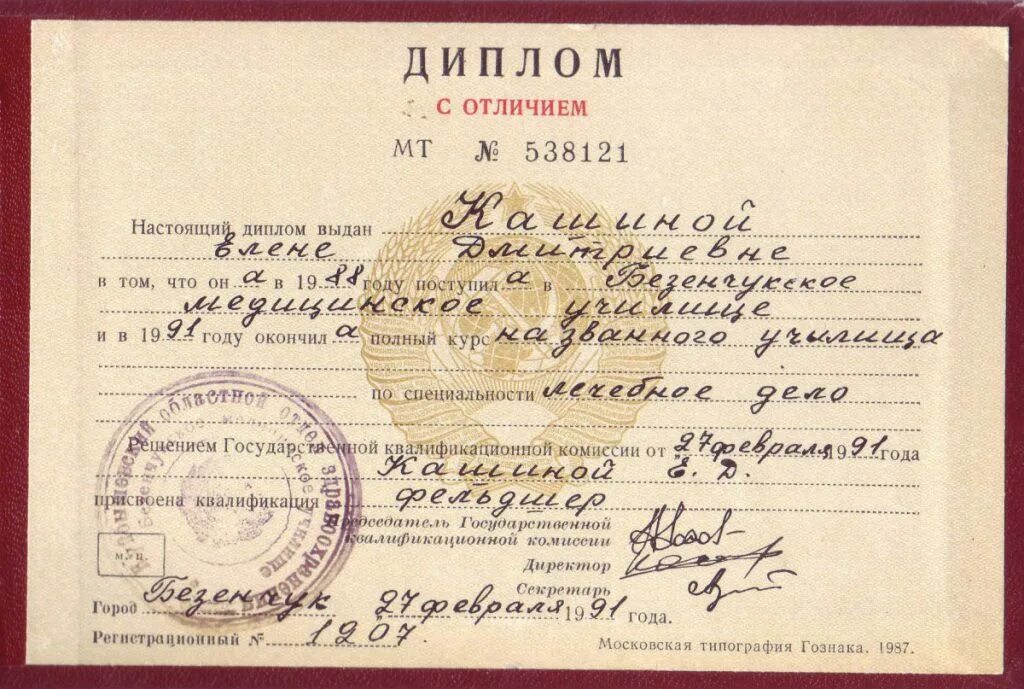 ДИПЛОМ
С ОТЛИЧИЕМ
МТ № 538121
Настоящий диплом выдан Кашиной
Елене Дмитриевне
в том, что он а в 1988 году поступил а в Безенчукское
медицинское училище
и в 1991 году окончил а полный курс названного училища
по специальности лечебное дело
Решением Государственной квалификационной комиссии от 27 февраля 1991 года
Кашиной Е. Д.
присвоена квалификация фельдшер
Председатель Государственной
квалификационной комиссии
Директор
Секретарь
м. п.
Город Безенчук 27 февраля 1991 года.
Регистрационный № 1207.
Московская типография Гознака. 1987.
областной отдел здравоохранения
училище